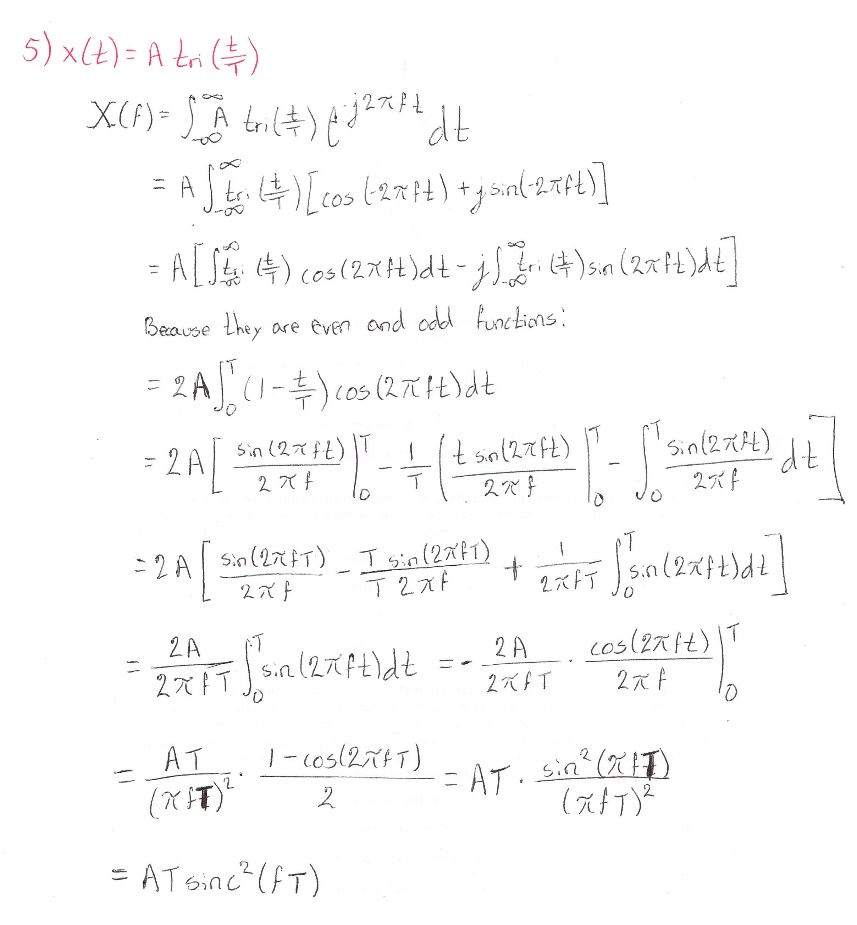 5) x(t) = A tri(t/T)
X(f) = ∫_{-∞}^{∞} A tri(t/T) e^{-j2πft} dt
= A ∫_{-∞}^{∞} tri(t/T) [cos(-2πft) + j sin(-2πft)]
= A [∫_{-∞}^{∞} tri(t/T) cos(2πft)dt - j ∫_{-∞}^{∞} tri(t/T) sin(2πft)dt]
Because they are even and odd functions:
= 2A ∫_0^T (1 - t/T) cos(2πft)dt
= 2A [ sin(2πft)/(2πf) |_0^T - 1/T ( t sin(2πft)/(2πf) |_0^T - ∫_0^T sin(2πft)/(2πf) dt ]
= 2A [ sin(2πfT)/(2πf) - T sin(2πfT)/(T 2πf) + 1/(2πfT) ∫_0^T sin(2πft)dt ]
= 2A/(2πfT) ∫_0^T sin(2πft)dt = - 2A/(2πfT) · cos(2πft)/(2πf) |_0^T
= AT/(πfT)² · (1 - cos(2πfT))/2 = AT · sin²(πfT)/(πfT)²
= AT sinc²(fT)